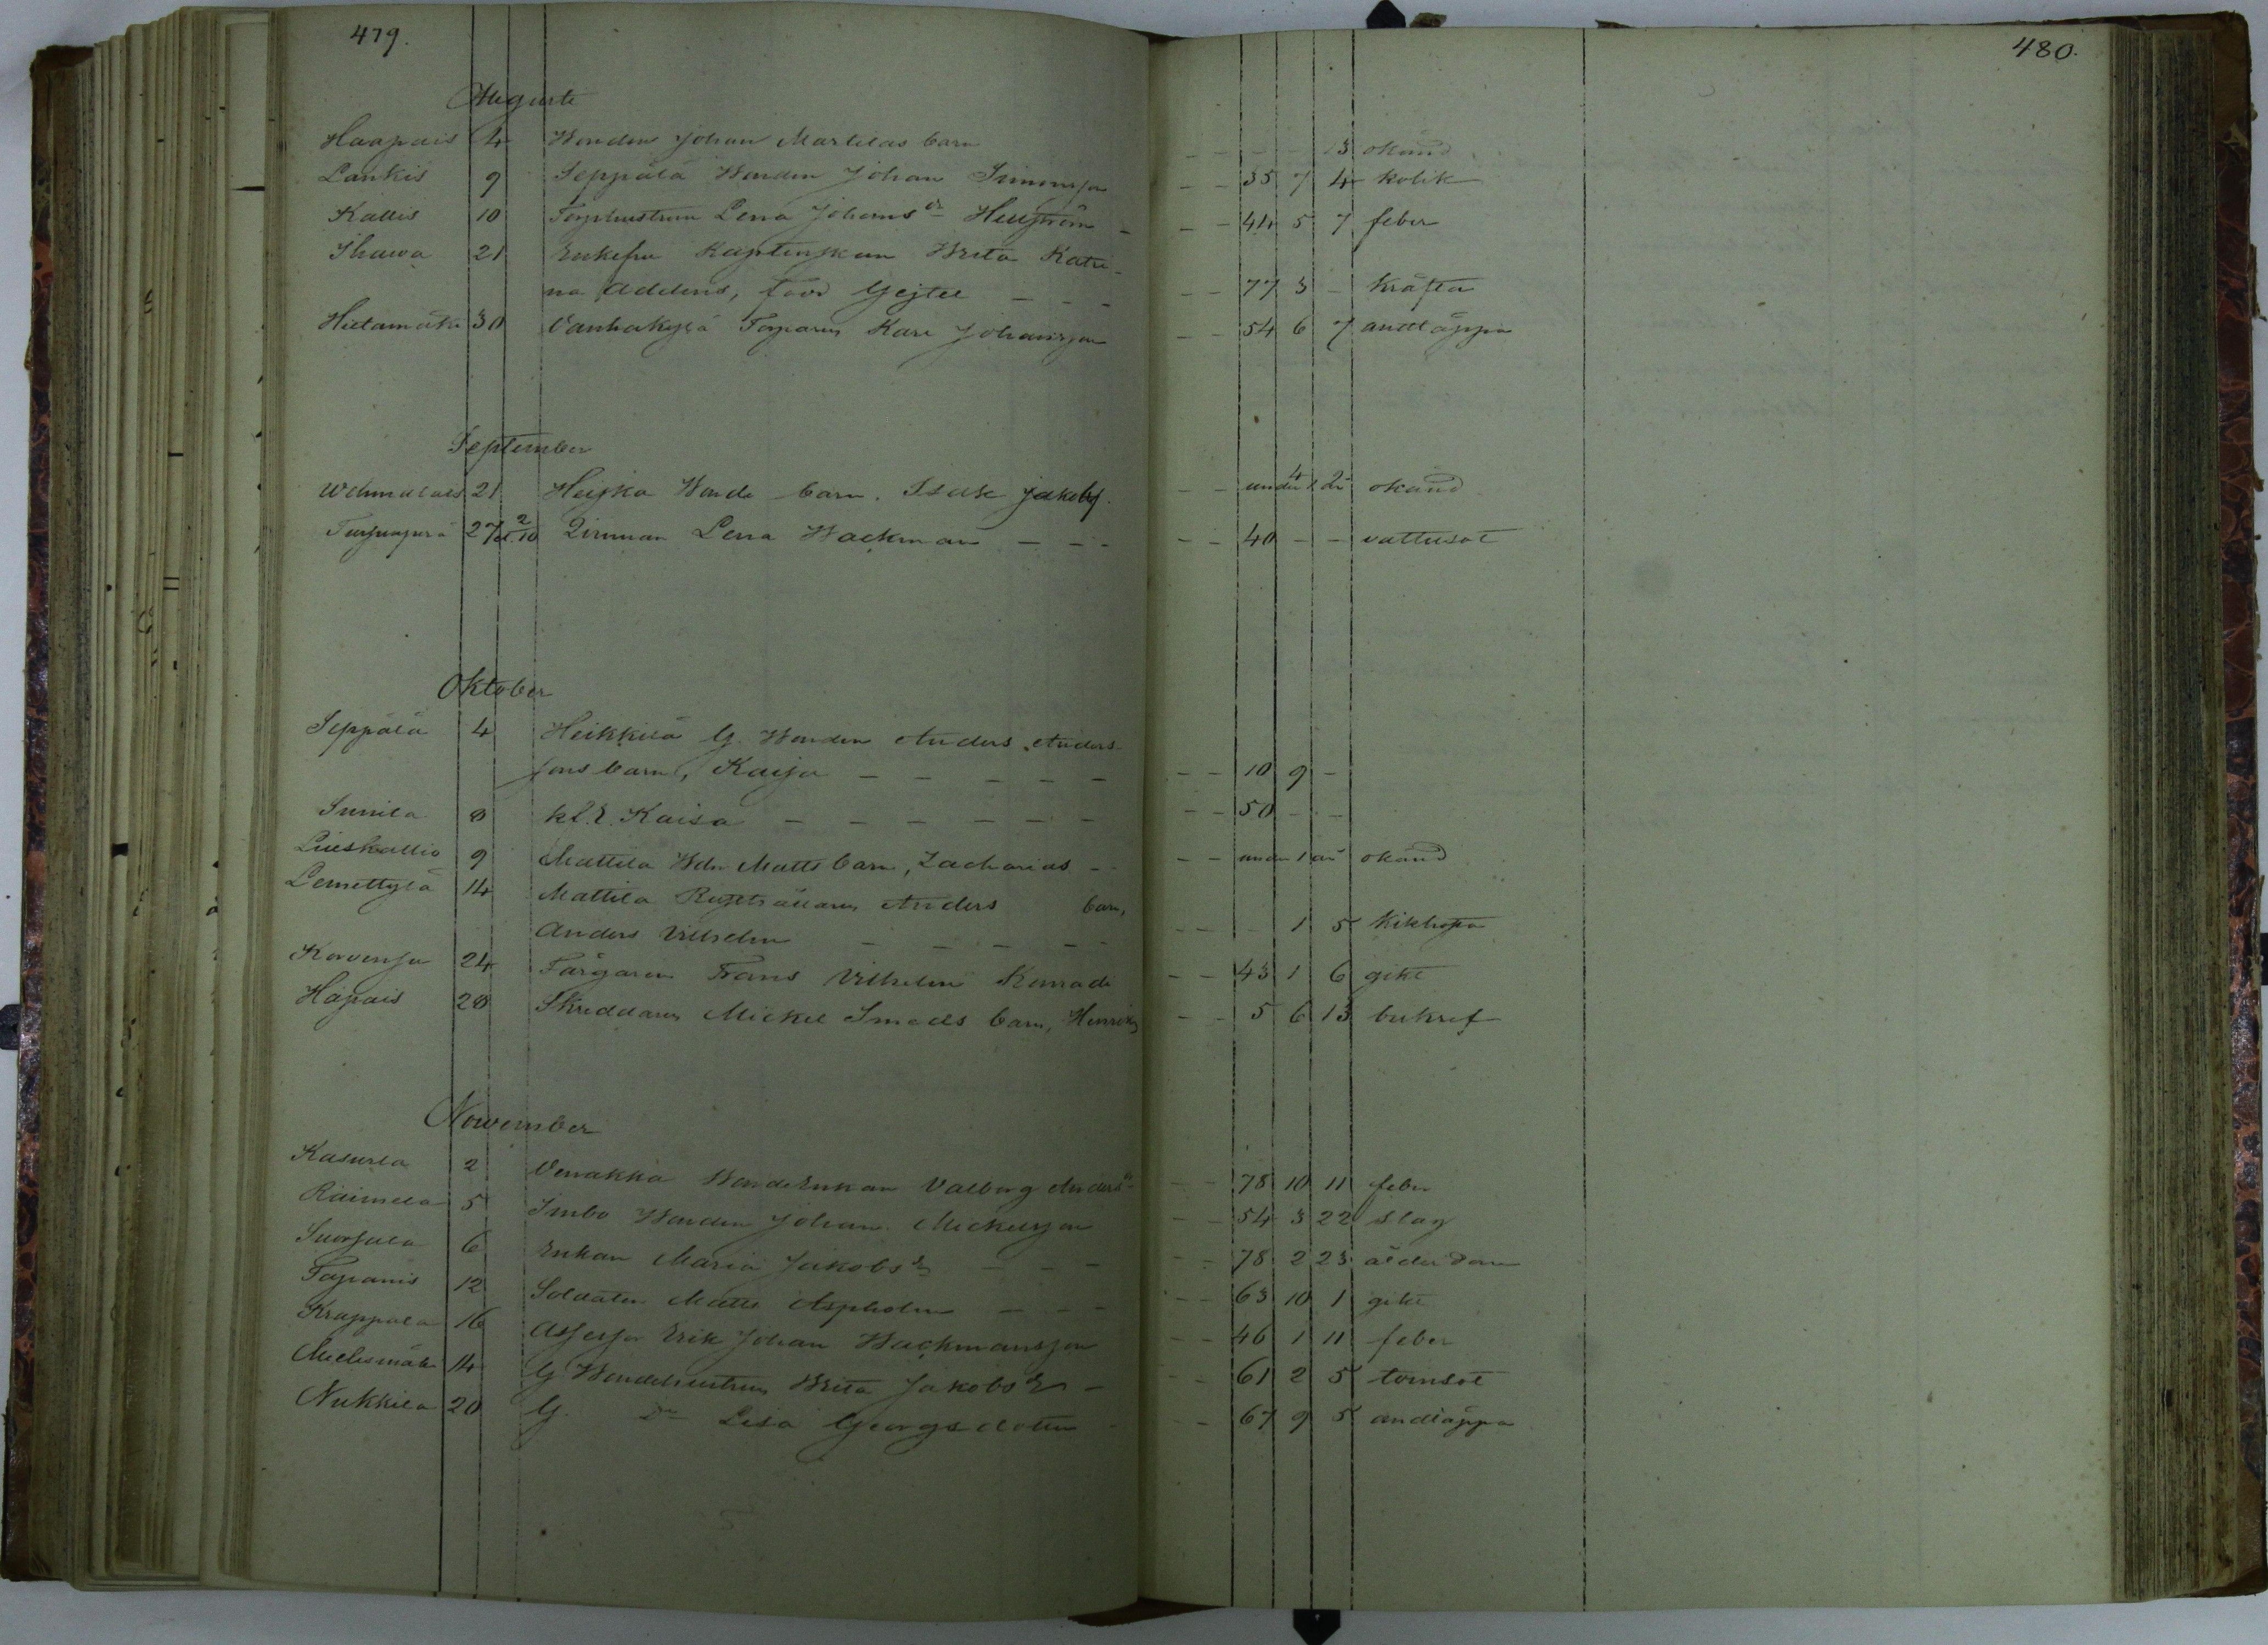 479.
480.
Augusti
Haapais 4 Bonden Johan Martilas barn - - - 13 okänd
Lankis 9 Seppälä Bonden Johan Simonsson - - 35 7 4 kolik
Kallis 10 Torphustrun Lena Johansdr - - - 44 5 7 feber
Ihawa 21 Enkefru Kaptenskan Brita Katri-
na Addens, född - - - - - 77 3 - kräfta
Hietamäki 30 Vanhakylä Torparen Karl Johansson - - 54 6 7 andtäppa
September
21 Heijka Bonde barn. Isak Jakobss. - - under 1 år okänd
27 2/10 Qvinnan Lena Backman - - - - - 40 - - vattusot
Oktober
Seppälä 4 Heikkilä G. Bonden Anders Anders-
sons barn, Kaisa - - - - - - - 10 9 -
Sunila 8 Kaisa - - - - - - - - 50 - -
Lieskallio 9 Mattila Bdn Matts barn, Zacharias - - - under 1 år okänd
Lemettylä 14 Mattila Anders barn,
Anders Vilhelm - - - - - - - - 1 5 kikhosta
24 Färgaren Frans Vilhelm Konradi - - 43 1 6 gikt
Häpais 28 Skreddaren Mickel Smeds barn, - - 5 6 13 bukref
November
Kasurla 2 Verrakka Bondeenkan Valborg Andersdr - - 78 10 11 feber
Räimelä 5 Simbo Bonden Johan Mickelsson - - 54 3 22 slag
Suorsala 6 Enkan Maria Jakobsdr - - - - 78 2 23 ålderdom
Tapanis 12 Soldaten Matts Aspholm - - - - - 63 10 1 gikt
Krappala 16 Assessor Erik Johan Backmansson - - 46 1 11 feber
Mielismäki 14 G Bondehustrun Brita Jakobsdr - - - 61 2 5 tvinsot
Nukkila 20 G. Do Lisa Georgsdotter - - 67 9 5 andtäppa